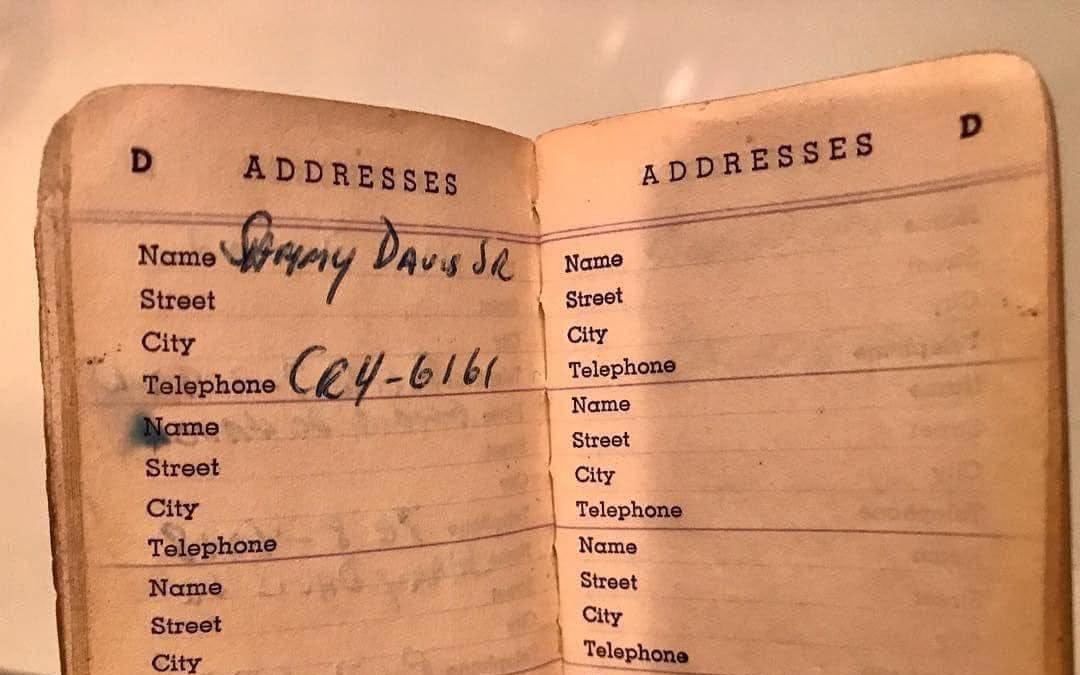 D ADDRESSES
Name SAMMY DAVIS JR
Street
City
Telephone CR4-6161
Name
Street
City
Telephone
Name
Street
City
ADDRESSES D
Name
Street
City
Telephone
Name
Street
City
Telephone
Name
Street
City
Telephone